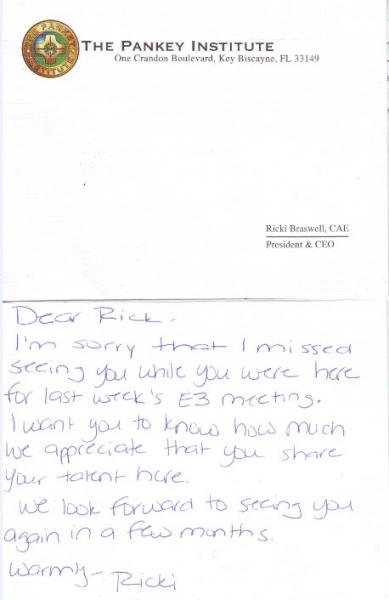 THE PANKEY INSTITUTE
THE PANKEY INSTITUTE
One Crandon Boulevard, Key Biscayne, FL 33149
Ricki Braswell, CAE
President & CEO
Dear Rick.
I'm sorry that I missed
seeing you while you were here
for last week's E3 meeting.
I want you to know how much
we appreciate that you share
your talent here.
We look forward to seeing you
again in a few months.
Warmly-
Ricki